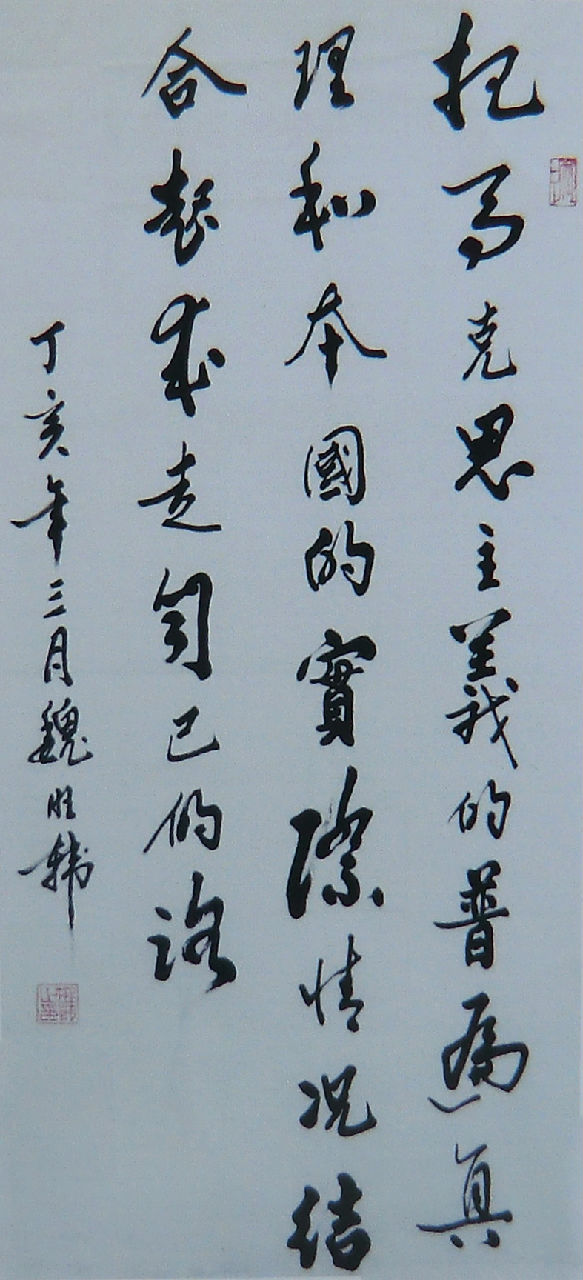 把马克思主義的普遍真
理和本國的實際情况结
合起来走自己的路
丁亥年三月魏旺